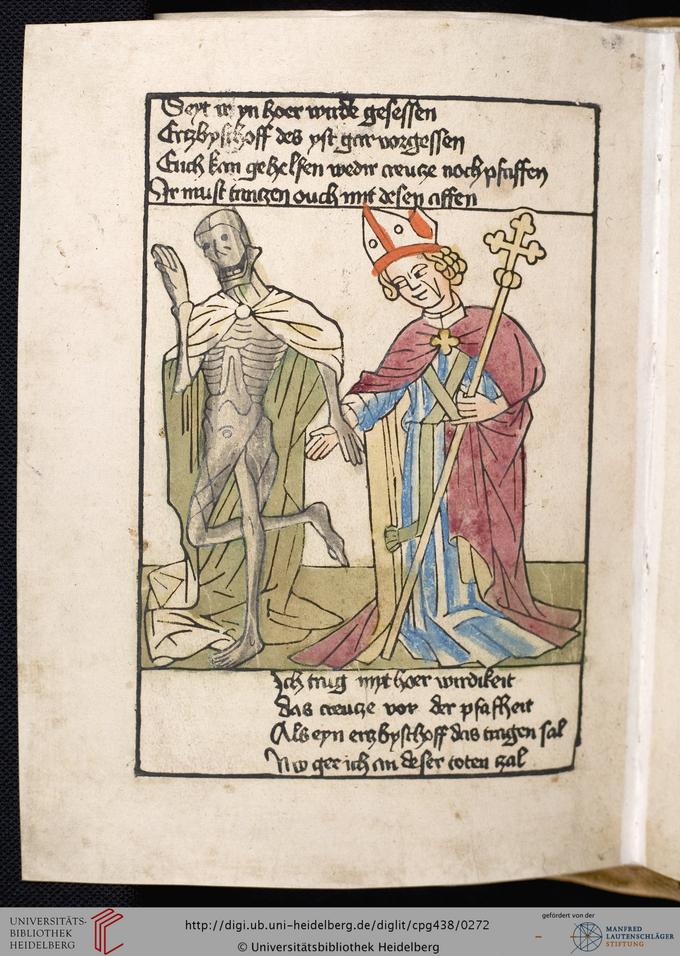 Seyt ir yn hoer wirde gesessen
Ertzbyschoff des yst gar vorgessen
Euch kan gehelfen wedir creucze noch pfaffen
Ir must tantzen ouch mit desen affen
Ich trug myt hoer wirdikeit
das creucze vor der pfafheit
Als eyn ertzbyschoff das tragen sal
Nw gee ich an deser toten zal
UNIVERSITÄTS-
BIBLIOTHEK
HEIDELBERG
http://digi.ub.uni-heidelberg.de/diglit/cpg438/0272
© Universitätsbibliothek Heidelberg
gefördert von der
MANFRED
LAUTENSCHLÄGER
STIFTUNG